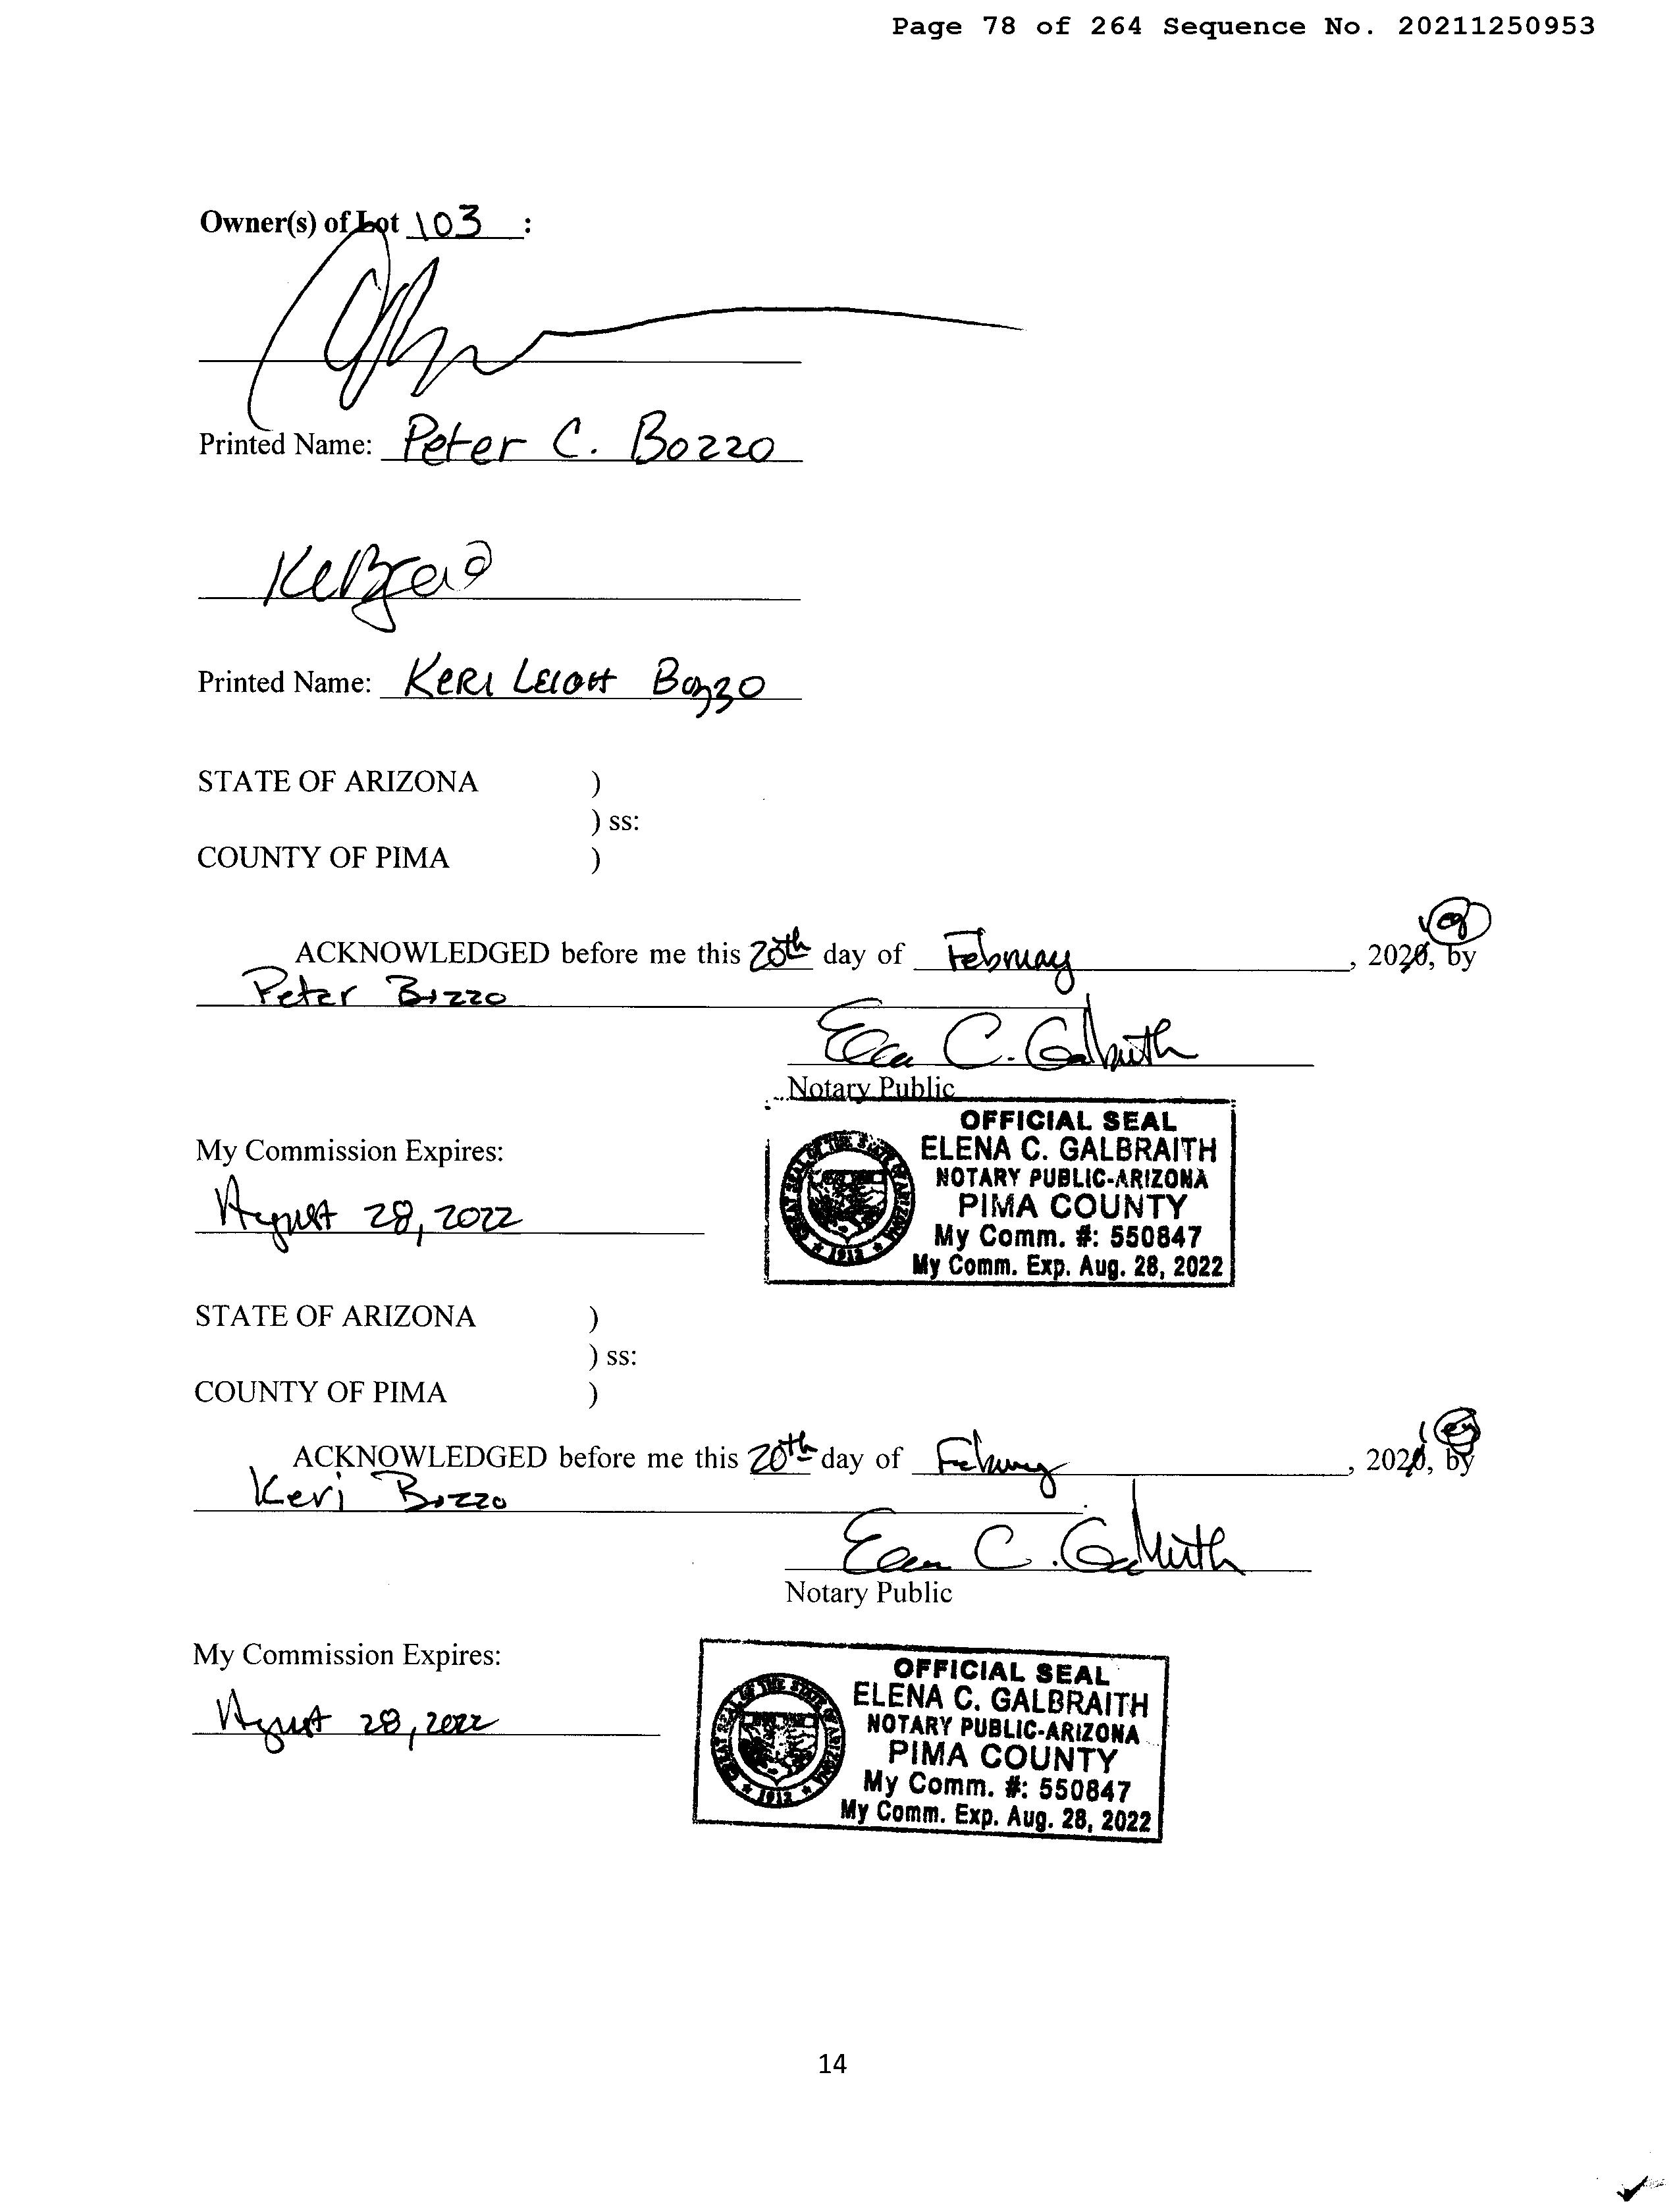 Page 78 of 264 Sequence No. 20211250953
Owner(s) of Lot 103 :
Printed Name: Peter C. Bozzo
Printed Name: KERI LEIGH Bozzo
STATE OF ARIZONA )
) ss:
COUNTY OF PIMA )
ACKNOWLEDGED before me this 20th day of February, 2021, by
Peter Bozzo
Elena C. Galbraith
Notary Public
OFFICIAL SEAL
ELENA C. GALBRAITH
NOTARY PUBLIC-ARIZONA
PIMA COUNTY
My Comm. #: 550847
My Comm. Exp. Aug. 28, 2022
GREAT SEAL OF THE STATE OF ARIZONA
1912
My Commission Expires:
August 28, 2022
STATE OF ARIZONA )
) ss:
COUNTY OF PIMA )
ACKNOWLEDGED before me this 20th day of February, 2021, by
Keri Bozzo
Elena C. Galbraith
Notary Public
My Commission Expires:
August 28, 2022
OFFICIAL SEAL
ELENA C. GALBRAITH
NOTARY PUBLIC-ARIZONA
PIMA COUNTY
My Comm. #: 550847
My Comm. Exp. Aug. 28, 2022
GREAT SEAL OF THE STATE OF ARIZONA
1912
14